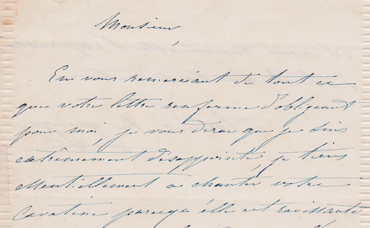 Monsieur
En vous remerciant de tout ce
que votre lettre renferme d'obligeant
pour moi, je vous dirai que je suis
extrêmement désappointé, je tiens
essentiellement à chanter votre
Cavatine parcequ'elle est ravissante